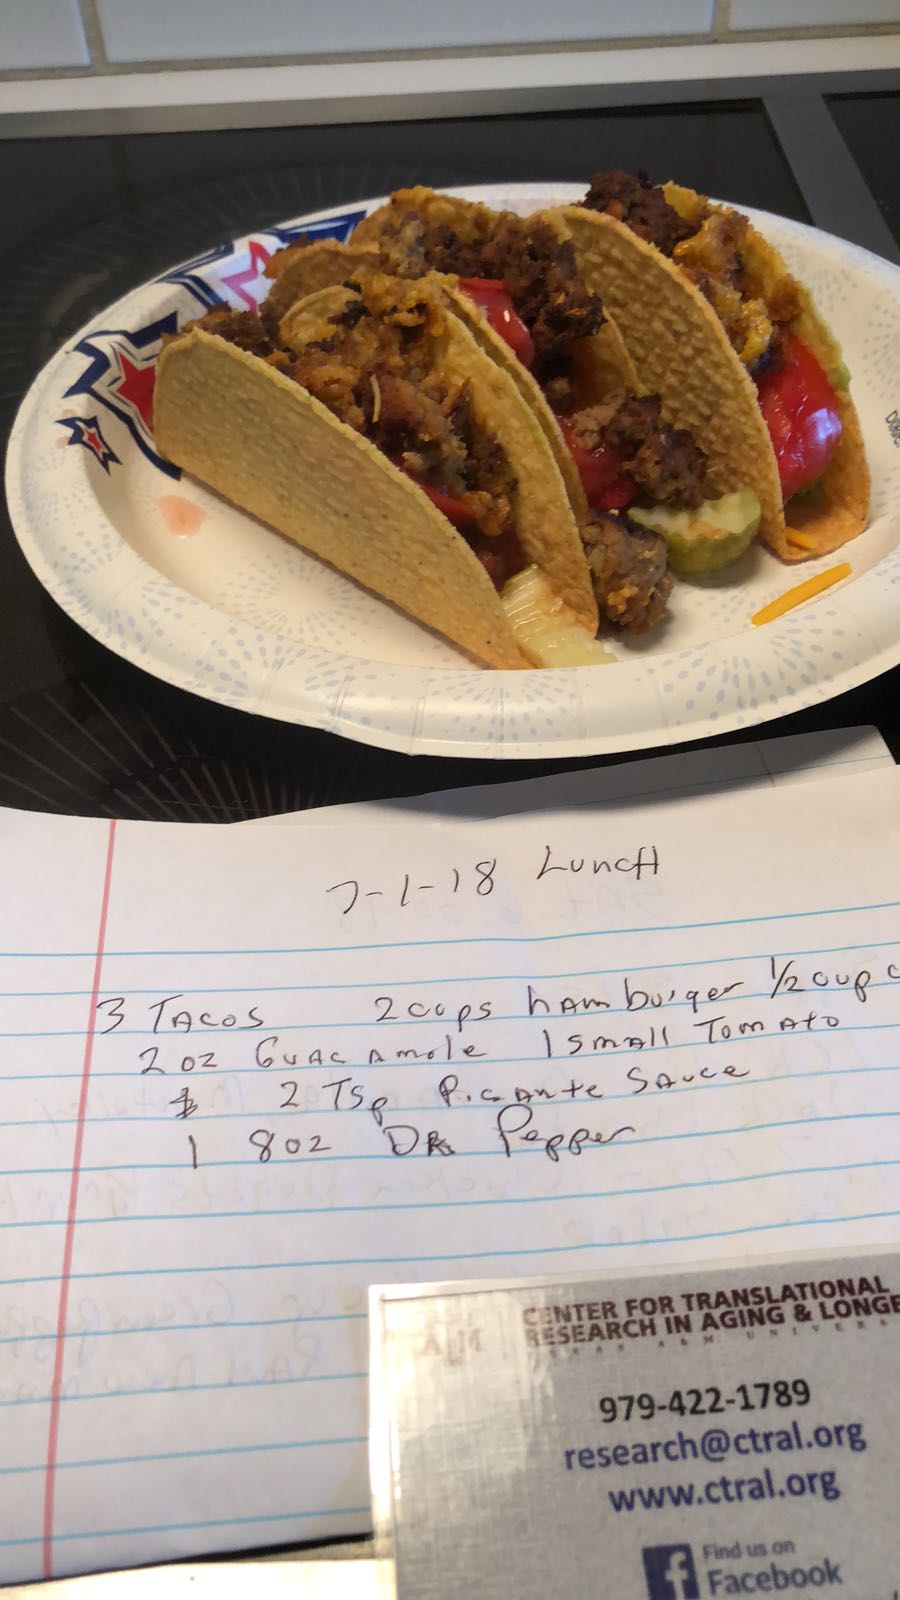 7-1-18 Lunch
3 Tacos 2 cups hamburger 1/2 cup c
2 oz Guacamole 1 small Tomato
2 Tsp Picante Sauce
1 8oz DR Pepper
CENTER FOR TRANSLATIONAL
RESEARCH IN AGING & LONGE
979-422-1789
research@ctral.org
www.ctral.org
f Find us on
Facebook